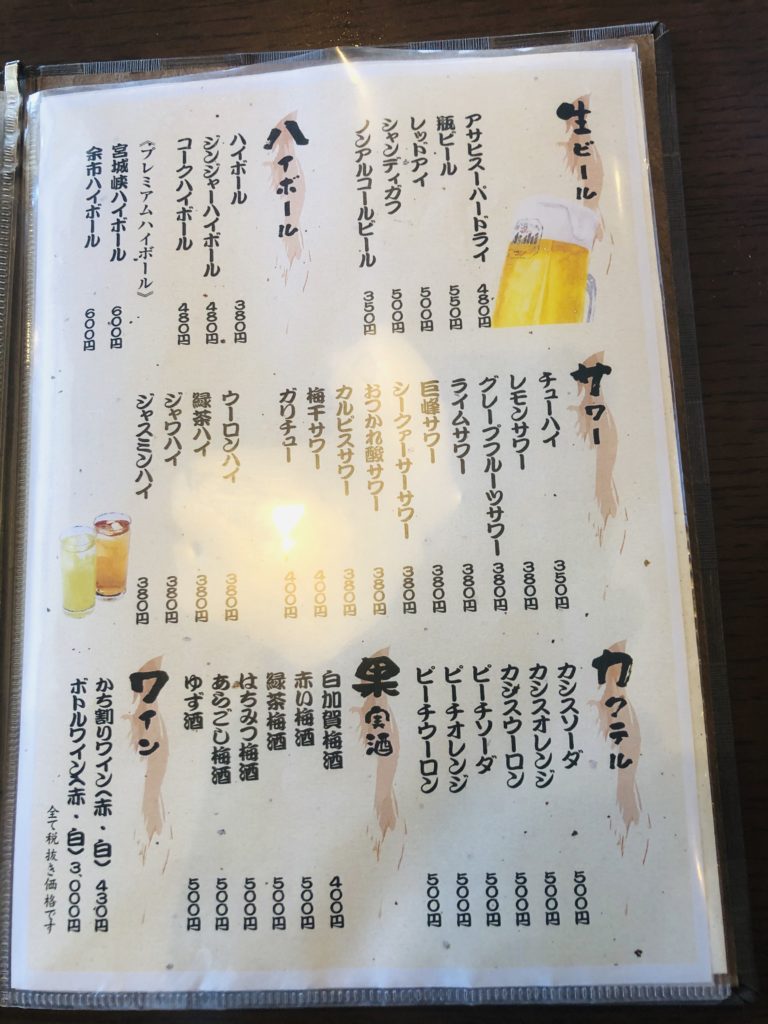 生ビール
アサヒスーパードライ 480円
瓶ビール 550円
レッドアイ 500円
シャンディガフ 500円
ノンアルコールビール 350円
ハイボール
ハイボール 380円
ジンジャーハイボール 480円
コークハイボール 480円
《プレミアムハイボール》
宮城峡ハイボール 600円
余市ハイボール 600円
サワー
チューハイ 350円
レモンサワー 380円
グレープフルーツサワー 380円
ライムサワー 380円
巨峰サワー 380円
シークァーサーサワー 380円
おつかれ酸サワー 380円
カルピスサワー 380円
梅干サワー 400円
ガリチュー 400円
ウーロンハイ 380円
緑茶ハイ 380円
ジャワハイ 380円
ジャスミンハイ 380円
カクテル
カシスソーダ 500円
カシスオレンジ 500円
カシスウーロン 500円
ピーチソーダ 500円
ピーチオレンジ 500円
ピーチウーロン 500円
果実酒
白加賀梅酒 400円
赤い梅酒 500円
緑茶梅酒 500円
はちみつ梅酒 500円
あらごし梅酒 500円
ゆず酒 500円
ワイン
かち割りワイン(赤・白) 430円
ボトルワイン(赤・白) 3,000円
全て税抜き価格です